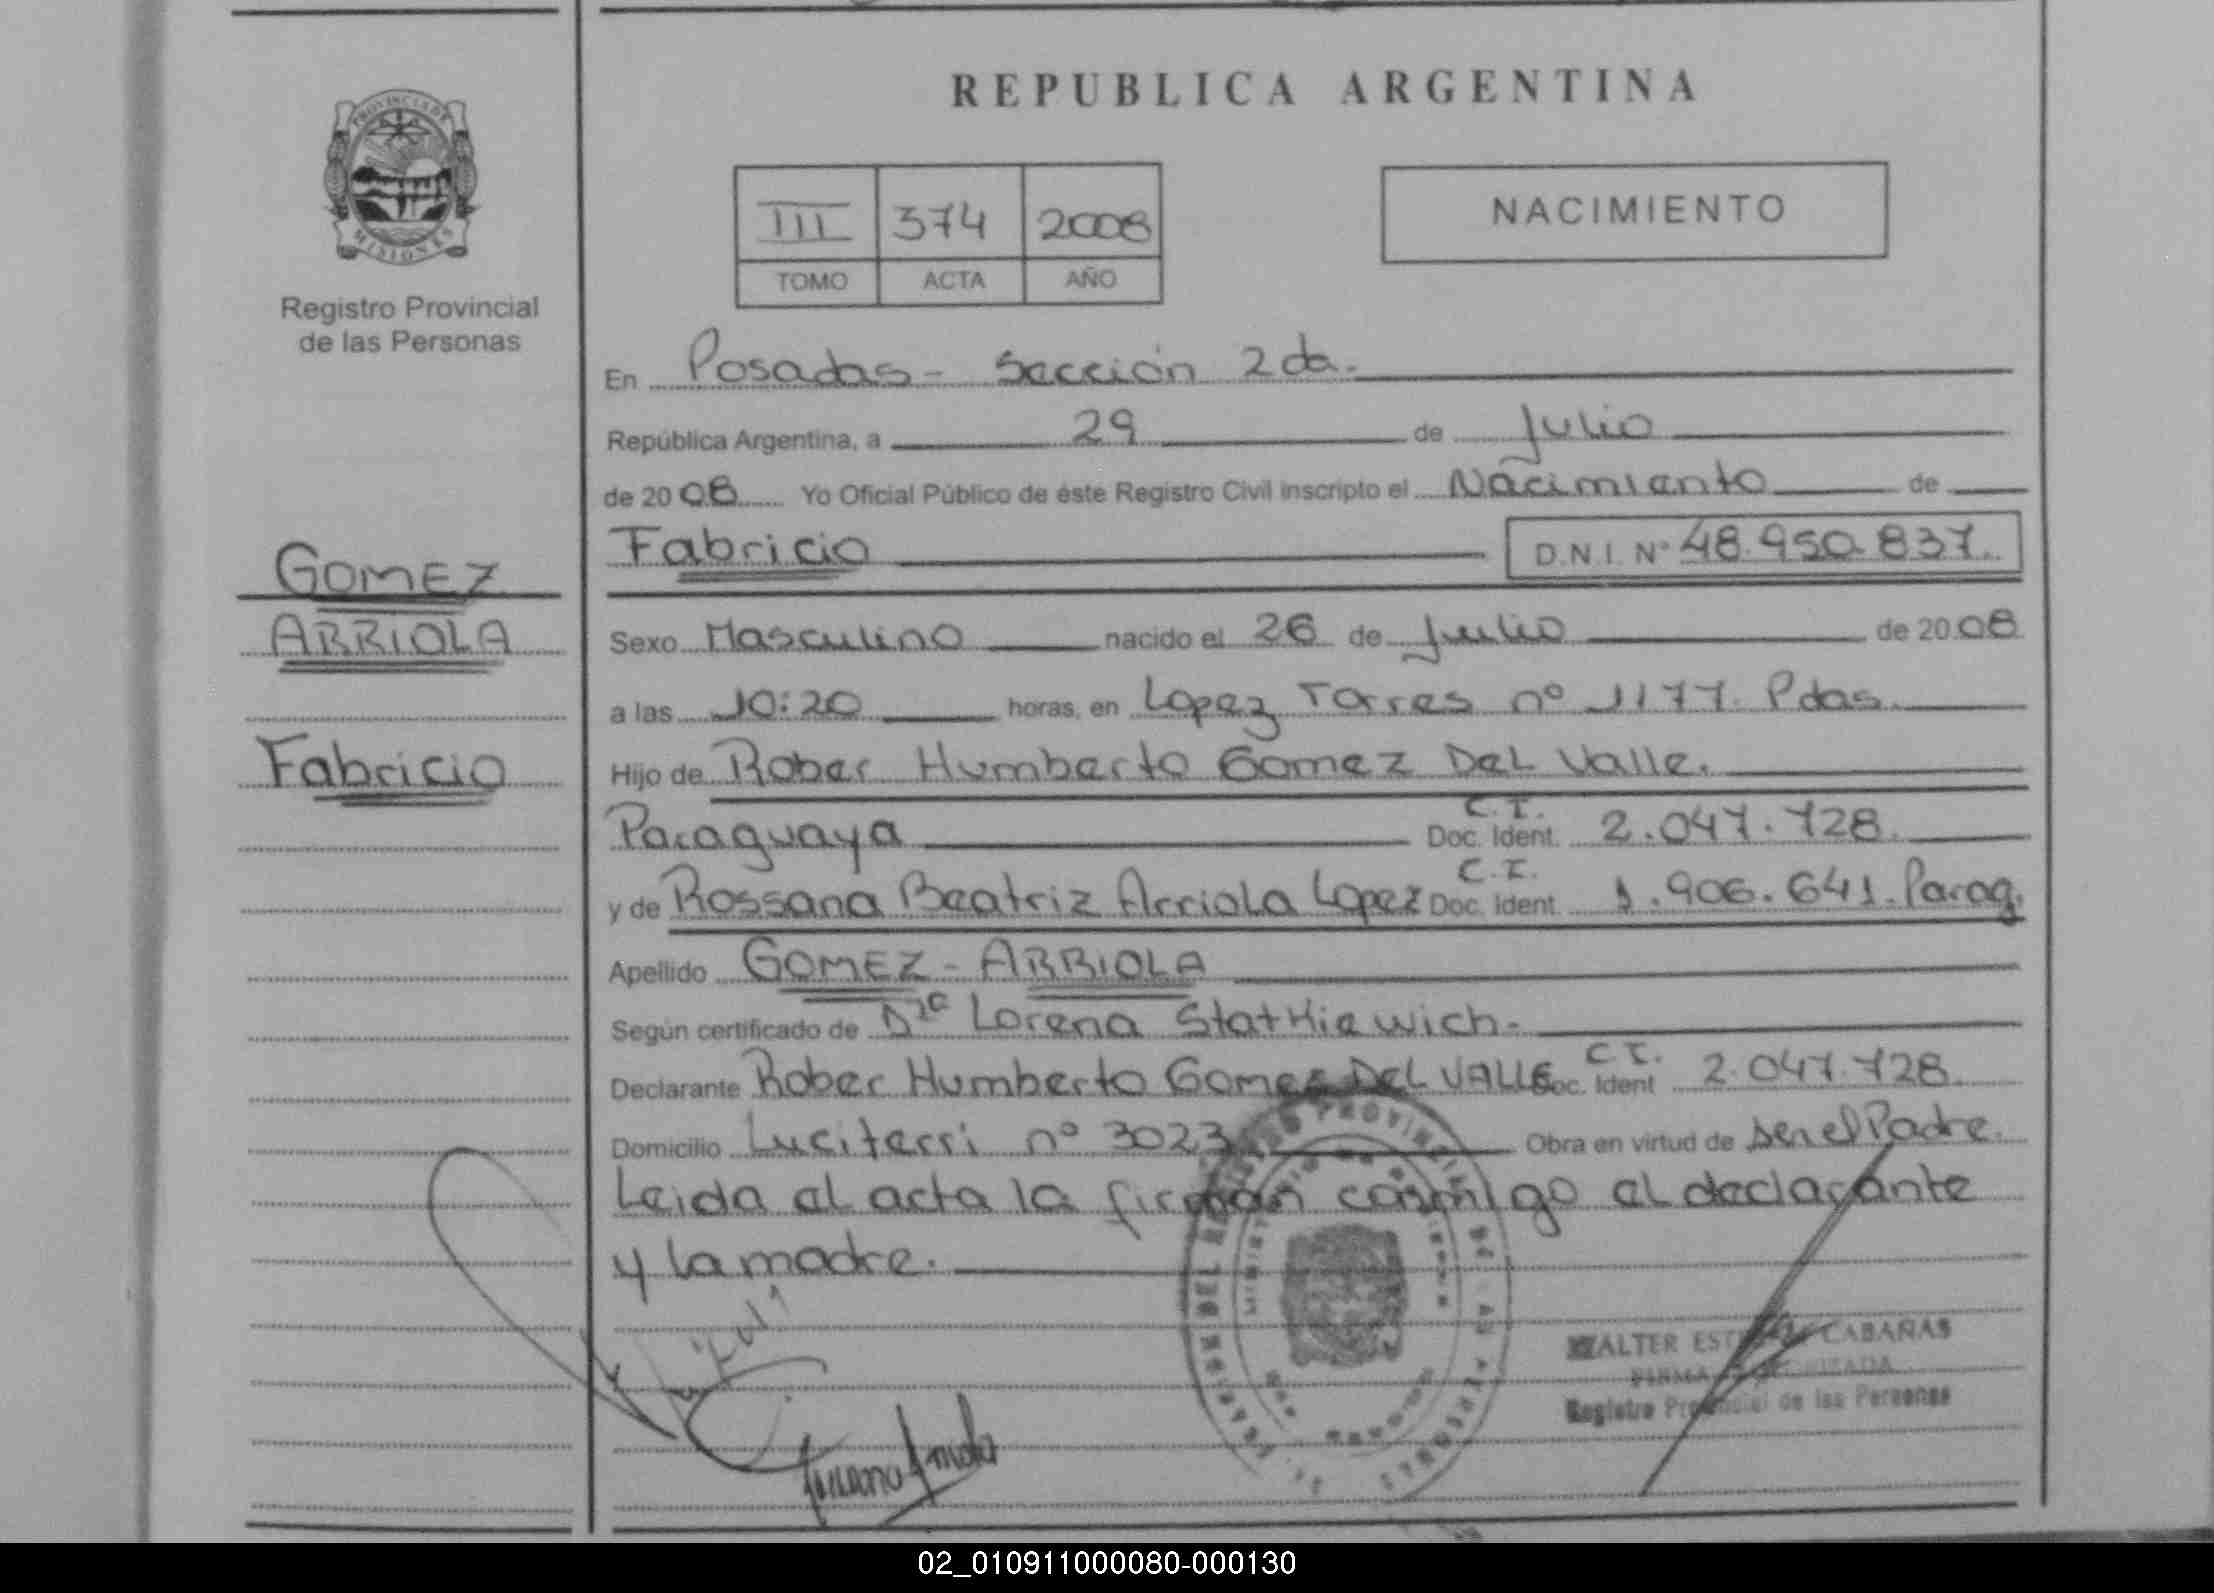 REPUBLICA ARGENTINA
PROVINCIA DE
MISIONES
Registro Provincial
de las Personas
III 374 2008
TOMO ACTA AÑO
NACIMIENTO
En Posadas - Sección 2da.
República Argentina, a 29 de Julio
de 2008 Yo Oficial Público de éste Registro Civil inscripto el Nacimiento de
Fabricio D.N.I. Nº 48.950.837.
GOMEZ
ARRIOLA
Fabricio
Sexo Masculino nacido el 26 de Julio de 2008
a las 10:20 horas, en Lopez Torres nº 1177. Pdas.
Hijo de Rober Humberto Gomez Del Valle.
Paraguaya C.I. Doc. Ident. 2.047.728.
y de Rossana Beatriz Arriola Lopez C.I. Doc. Ident. 1.906.641. Parag.
Apellido GOMEZ - ARRIOLA
Según certificado de Dra Lorena Statkiewich.
Declarante Rober Humberto Gomez DEL VALLE C.I. Doc. Ident 2.047.728.
Domicilio Luciterri nº 3023 Obra en virtud de ser el Padre.
Leida el acta la firman conmigo el declarante
y la madre.
WALTER CABAÑAS
FIRMA AUTORIZADA
Registro Provincial de las Personas
02_010911000080-000130